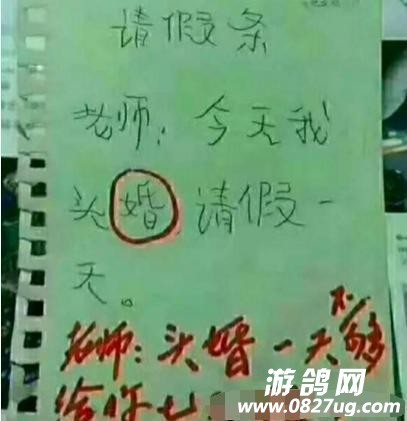 请假条
老师:今天我
头婚请假一
天。
老师:头婚一天不够
给你七
游鸽网
www.0827ug.com